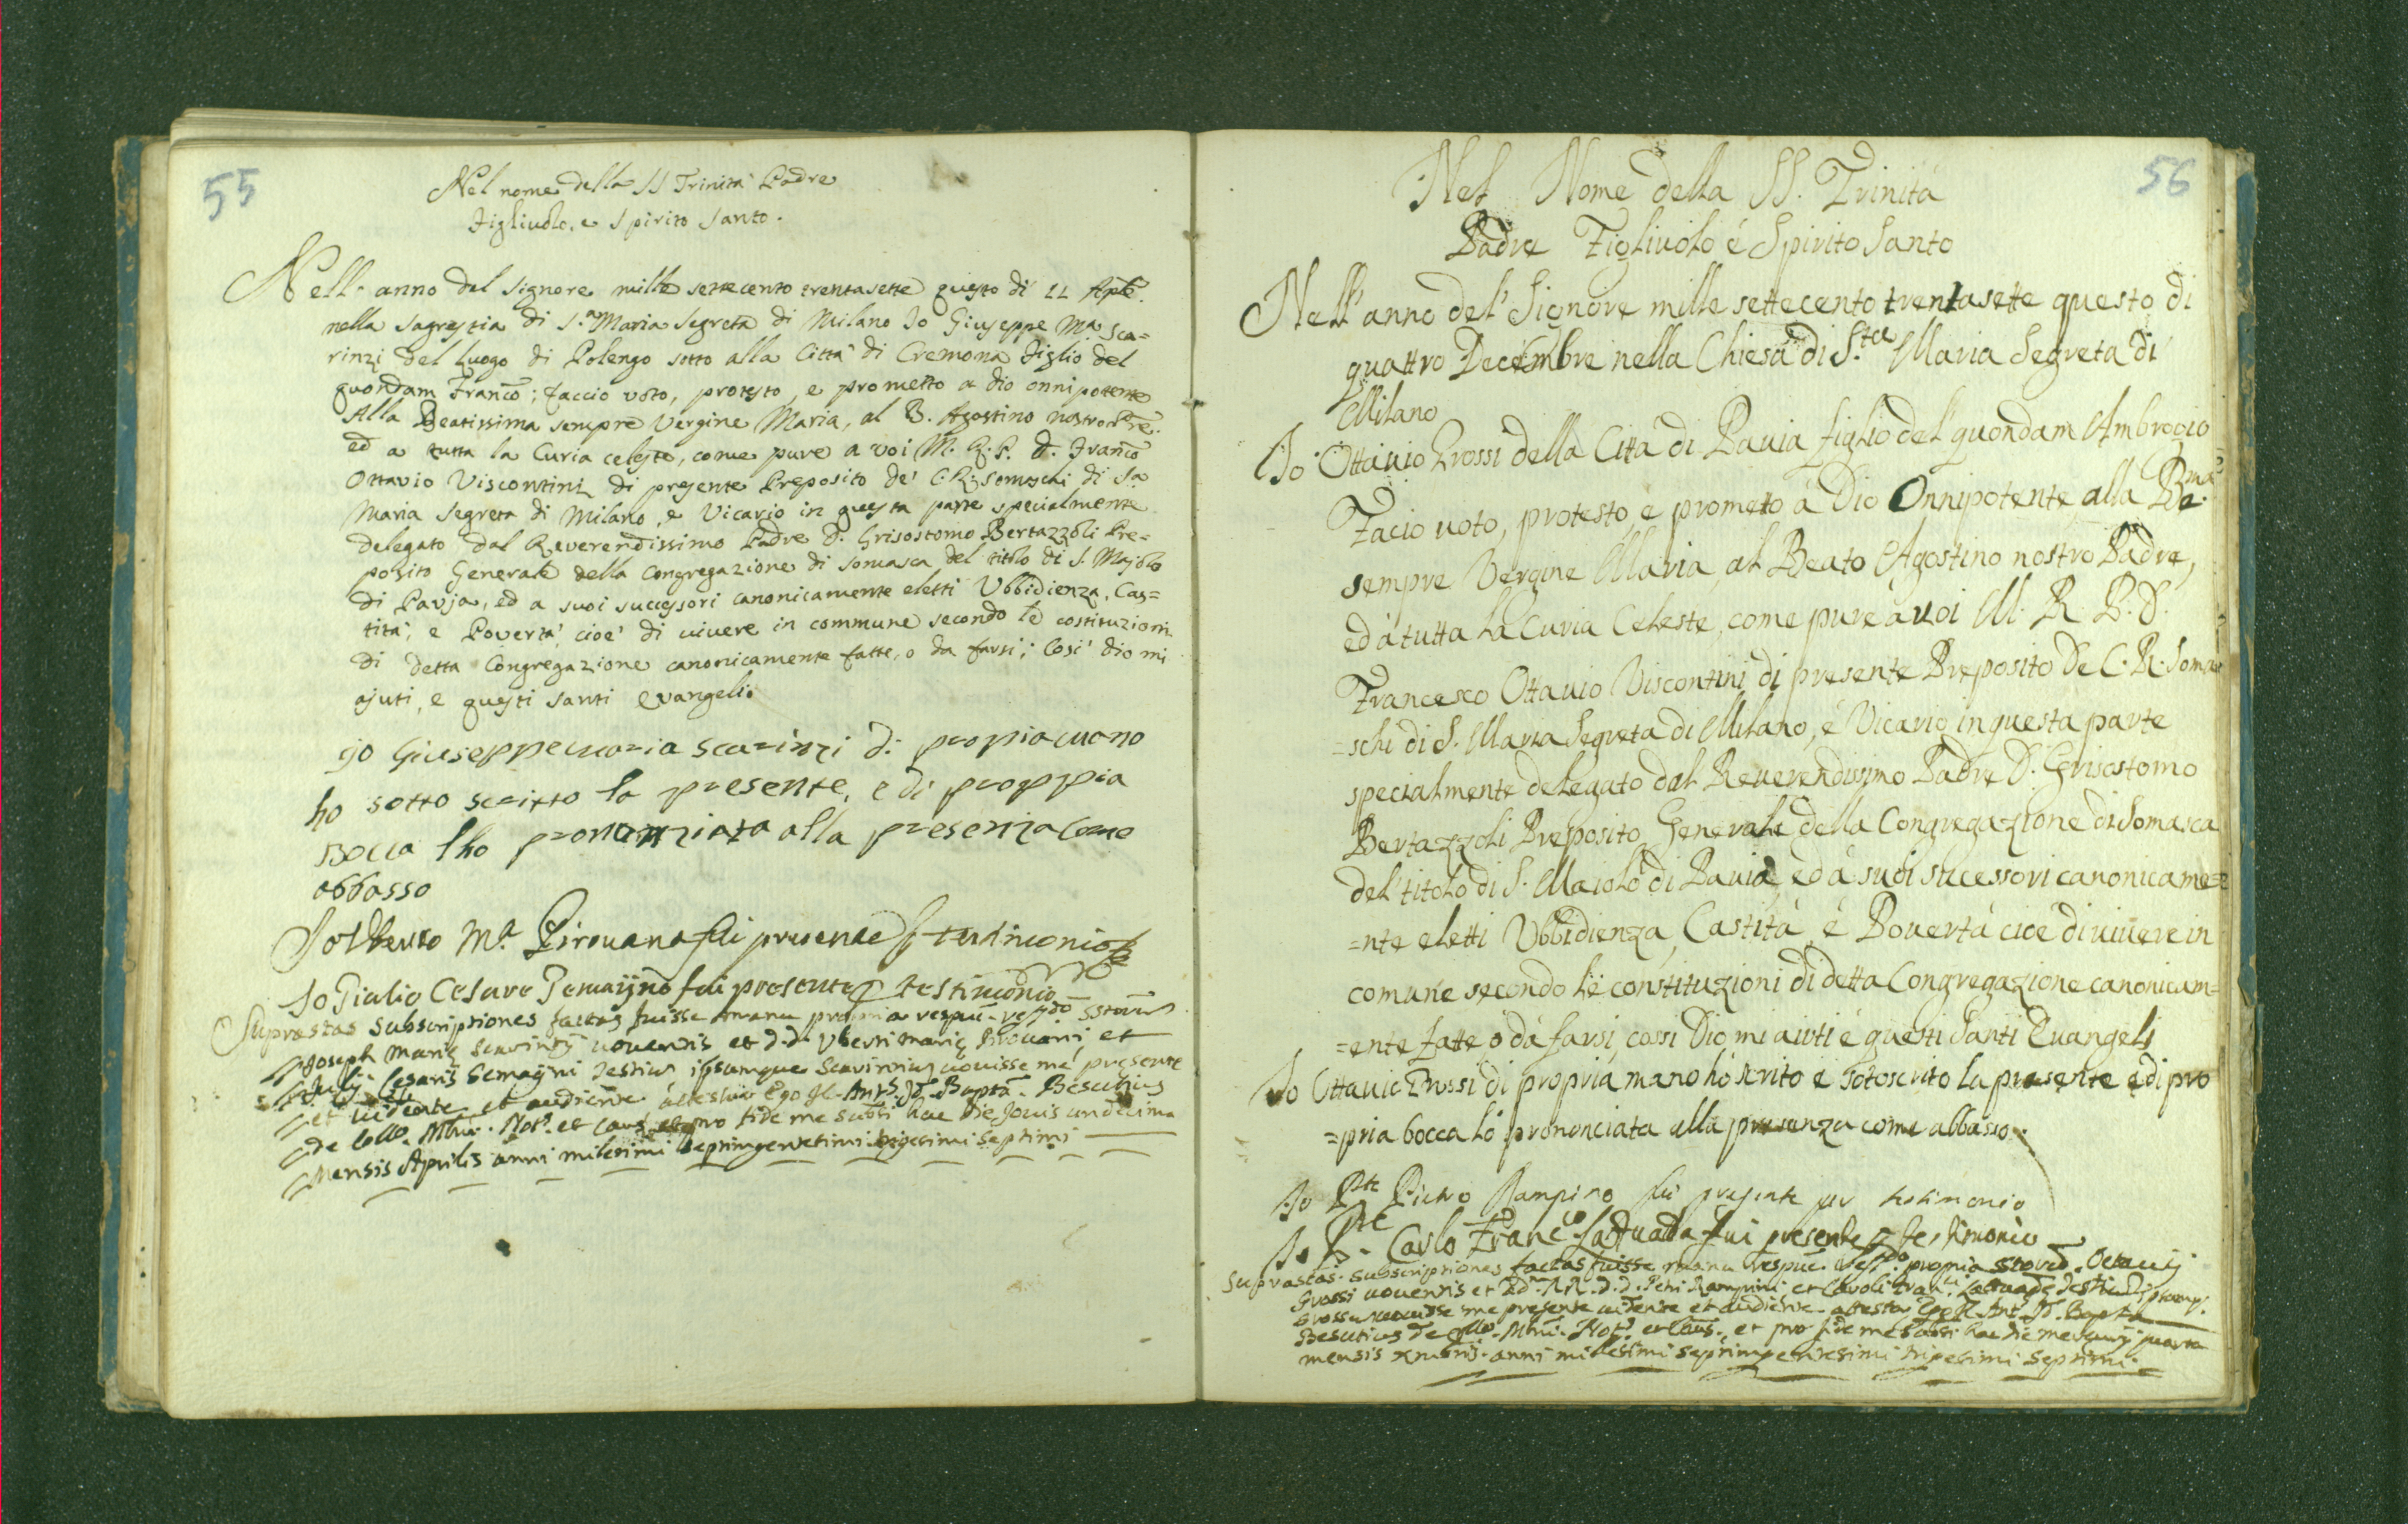 55
Nel nome della SS Trinità Padre
Figliuolo, e Spirito Santo.
Nell' anno del Signore mille settecento trentasette questo di 11 Aple.
nella Sagrestia di S.a Maria Segreta di Milano Io Giuseppe Ma. Sca=
rinzi del Luogo di Polengo sotto alla Città di Cremona Figlio del
quondam Franco; faccio voto, protesto, e prometto a Dio onnipotente
Alla Beatissima sempre Vergine Maria, al B. Agostino nostro Pre.
ed a tutta la Curia celeste, come pure a voi M. R. P. D. Franco
Ottavio Viscontini di presente Preposito de' C.R. Somaschi di Sa
Maria Segreta di Milano, e Vicario in questa parte specialmente
delegato dal Reverendissimo Padre D. Grisostomo Bertazzoli Pre=
posito Generale della Congregazione di Somasca del titolo di S. Majolo
di Pavja, ed a suoi successori canonicamente eletti Ubbidienza, Cas=
tità, e Povertà, cioè di vivere in commune secondo le costituzioni
di detta Congregazione canonicamente fatte, o da farsi; Così Dio mi
ajuti, e questi santi evangeli.
io Giuseppe maria scarinzi di propia mano
ho sotto scritto la presente, e di proppia
bocca lho prononziata alla presenza come
abbasso
Io Uberto Ma. Pirovana fui presente p testimonio
Io Giulio Cesare Gemaijno fui presente p testimonio
Suprastas subscriptiones factas fuisse manu propria respue. ssto
Joseph Marię Scarinzij voventis et d.d. Uberti Marię Pirovani, et
Julij Cesaris Gemaijni testium ipsumque Scarinzium vovisse me presente
et vidente et audiente attestor Ego Jo. Bapta. Besutius
de Collo. Mlni. Not. et Caus. et pro fide me subsi hac die Jovis undecima
Mensis Aprilis anni milesimi septingentesimi trigesimi septimi
56
Nel Nome della SS. Trinità
Padre Figliuolo é Spirito Santo
Nell'anno del' Signore mille settecento trentasette questo di
quattro Decembre nella Chiesa di S.ta Maria Segreta di
Milano
Io Ottavio Grossi della Città di Pavia figlio del' quondam Ambrogio
Facio voto, protesto, e prometo á Dio Onnipotente, alla Bma.
sempre Vergine Maria, al Beato Agostino nostro Padre,
ed á tutta la Curia Celeste, come pure à voi M. R. P. D.
Francesco Ottavio Viscontini di presente Preposito De C. R. Soma
=schi di S. Maria Segreta di Milano, é Vicario in questa parte
specialmente delegato dal Reverendissimo Padre D. Grisostomo
Bertazzoli Preposito Generale della Congregazione di Somasca
del' titolo di S. Maiolo di Pavia, ed á suoi sucessori canonicame=
=nte eletti Ubbidienza, Castità, é Povertà cioè di vivere in
comune secondo le constituzioni di detta Congregazione canonicam=
=ente fatte, o dà farsi, cossi Dio mi aiuti é questi Santi Evangeli
Io Ottavio Grossi di propria mano hò scrito e sotoscrito la presente e di pro
=pria bocca lò prononciata alla presenza come abbasso.
Io Pte Pietro Rampino fui presente per testimonio
Io Pte Carlo Franco. Lattuada fui presente p testimonio
Suprastas. subscriptiones factas fuisse manu respue. propria Octavij
Grossi voventis et Petri Rampini, et Caroli Lattuade
Grossum vovisse me presente vidente et audiente attestor Ego Bapta
Besutius de Collo. Mlni. Not. et Caus., et pro fide me subsi hac die mercurij quarta
mensis Xmbris. anni millesimi septingentesimi trigesimi septimi.